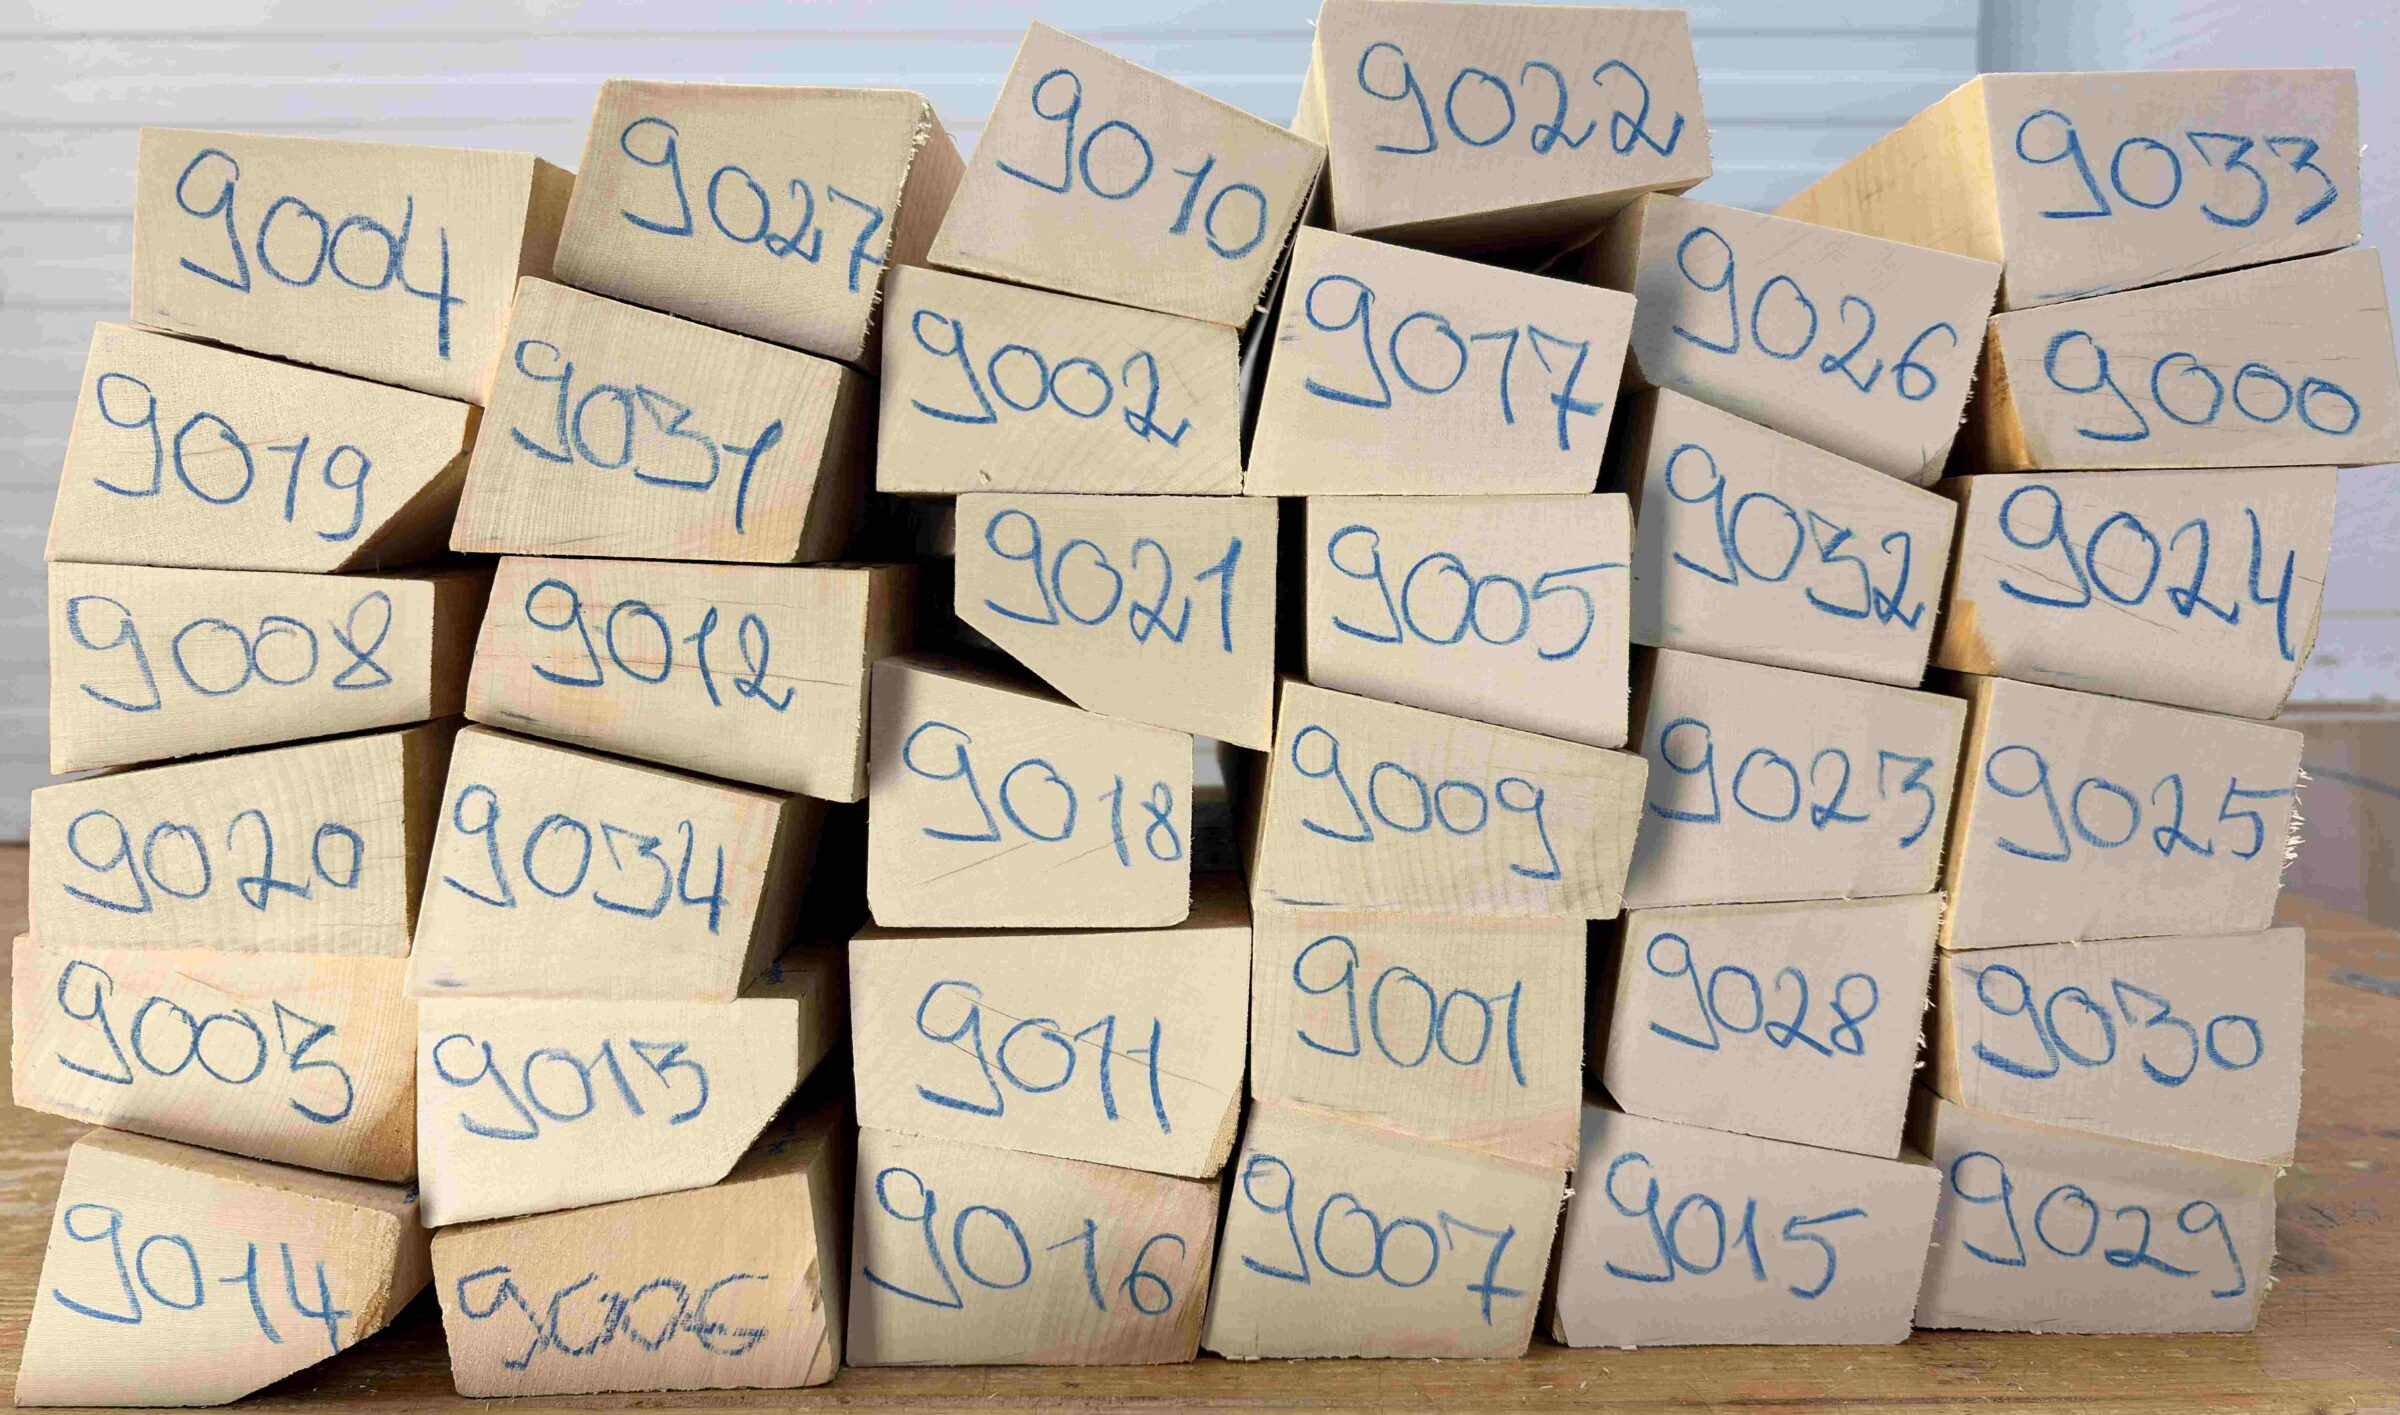 9004
9027
9010
9022
9033
9019
9031
9002
9017
9026
9000
9008
9012
9021
9005
9032
9024
9020
9034
9018
9009
9023
9025
9003
9013
9011
9001
9028
9030
9014
9006
9016
9007
9015
9029